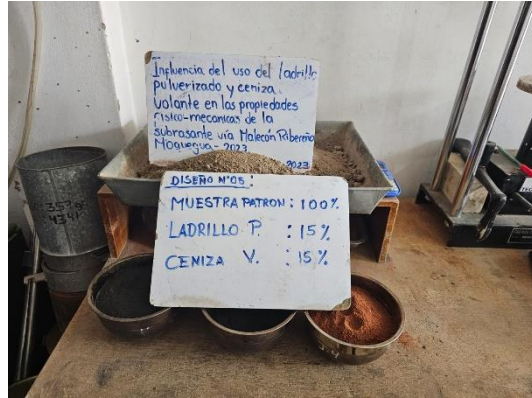 Influencia del uso del ladrillo
pulverizado y ceniza
volante en las propiedades
físico-mecánicas de la
subrasante vía Malecón Ribereño
Moquegua - 2023
2023
DISEÑO N°05:
MUESTRA PATRON: 100%
LADRILLO P. : 15%
CENIZA V. : 15%